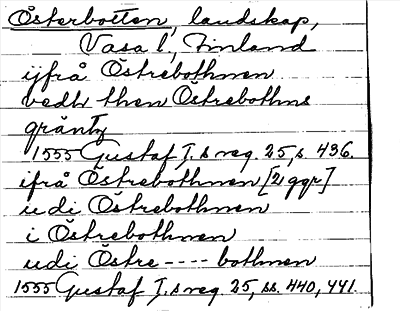 Österbotten, landskap,
Vasa l, Finland
ijfrå Östrebothnen
vedh then Östrebothns
gräntz
1555 Gustaf I.s reg. 25, s. 436.
ifrå Östrebothnen [2 ggr]
udi Östrebothnen
i Östrebothnen
udi Östre----bothnen
1555 Gustaf I.s reg. 25, ss. 440, 441.